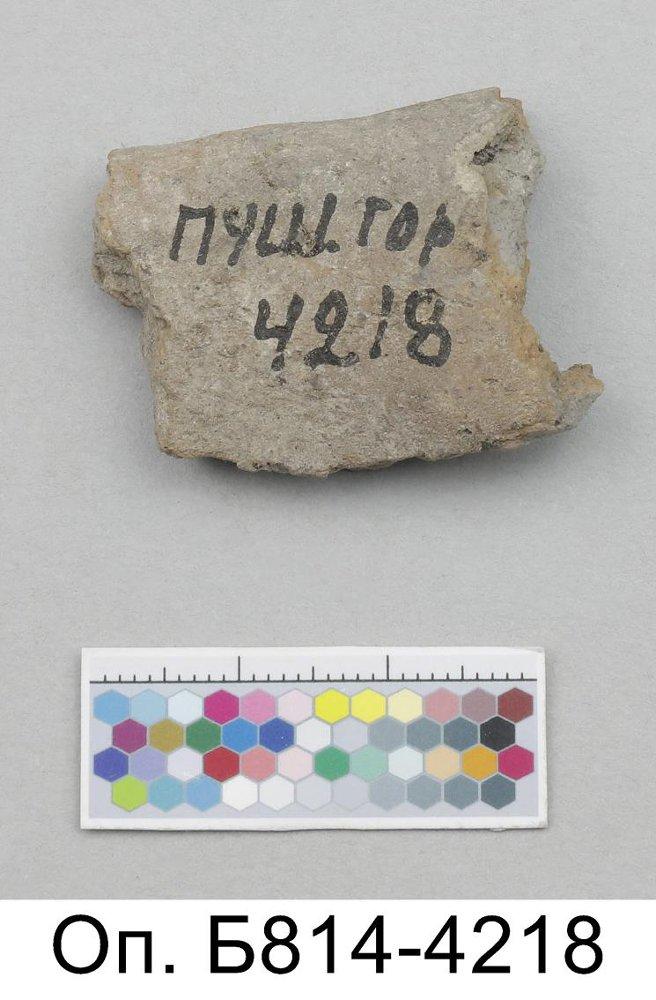 ПУШ. ГОР
4218
Оп. Б814-4218